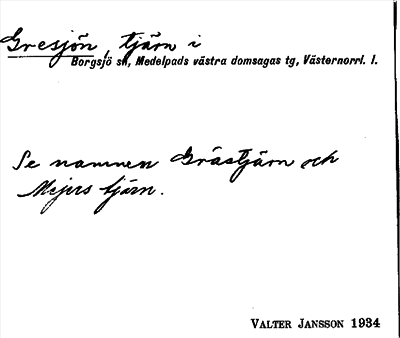 Gresjön, tjärn i
Borgsjö sn, Medelpads västra domsagas tg, Västernorrl. l.
Se namnen Grästjärn och
Mejers tjärn.
VALTER JANSSON 1934